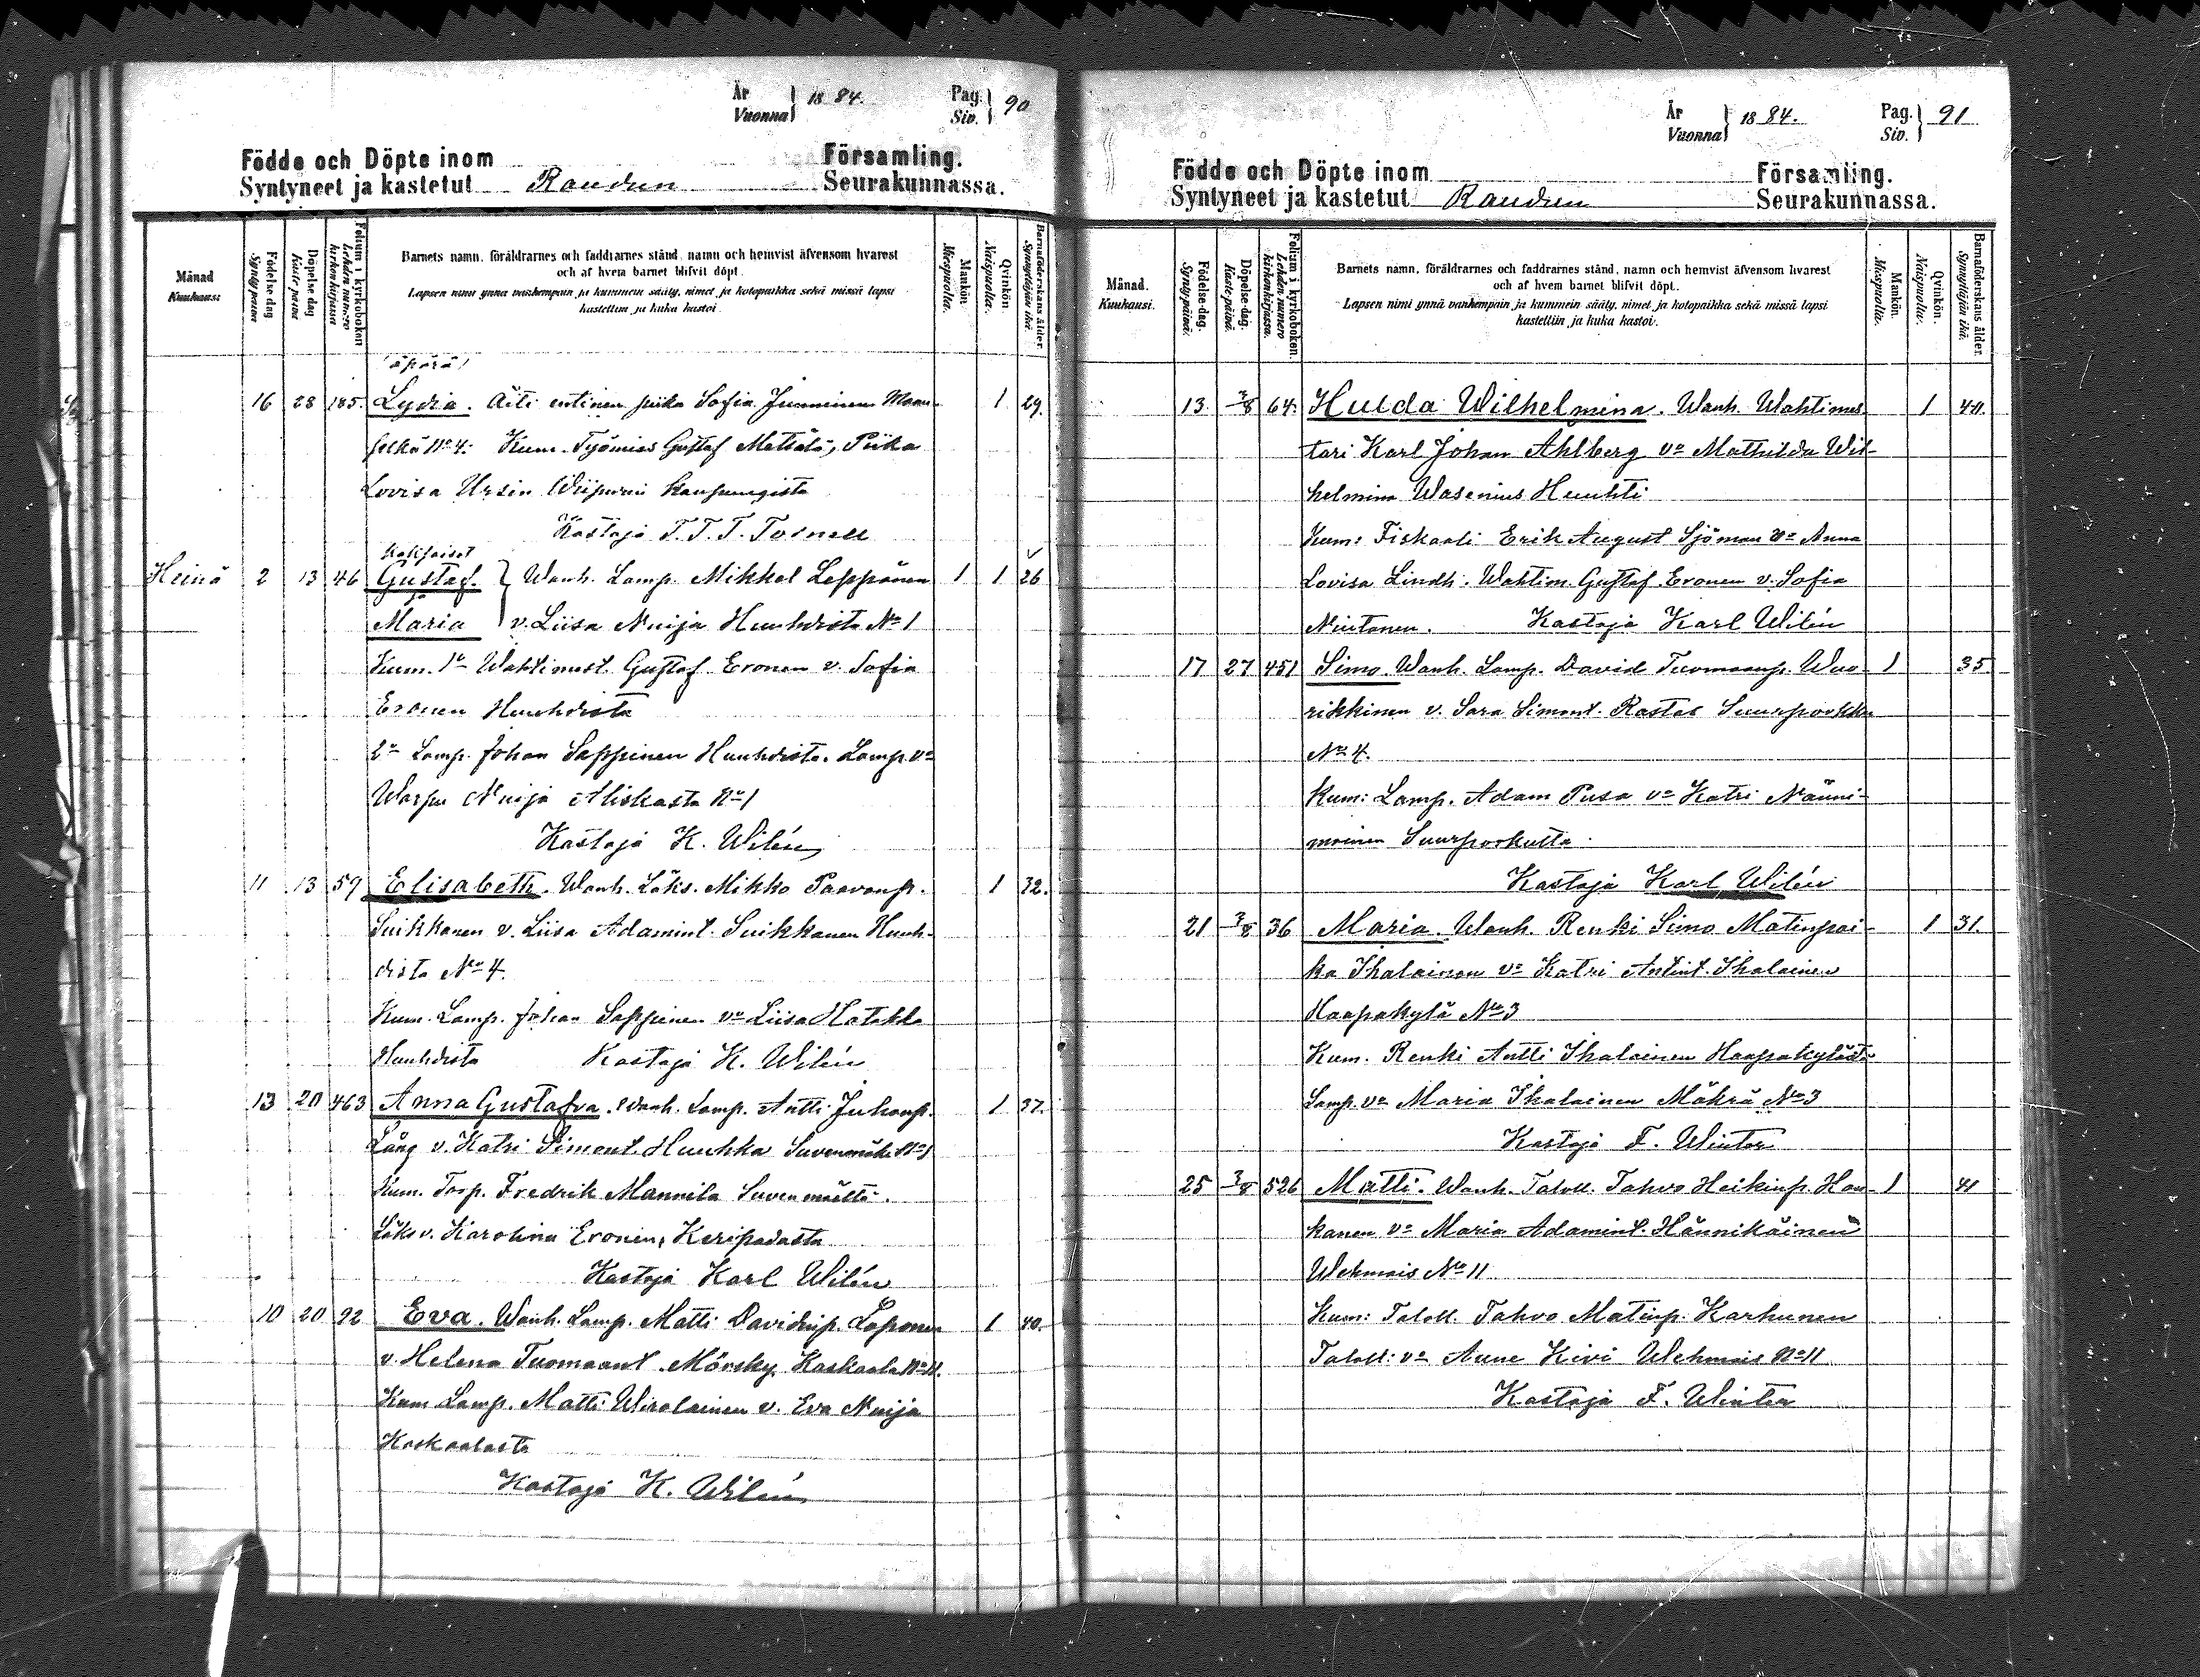 År
Vuonna } 1884.
Pag.
Siv. } 90
Födde och Döpte inom Församling.
Syntyneet ja kastetut Raudun Seurakunnassa.
Månad
Kuukausi
Födelse dag
Syntypäivä
Döpelse dag
Kaste päivä
Folium i kyrkoboken
Lehden numero kirkonkirjassa
Barnets namn, föräldrarnes och faddrarnes stånd, namn och hemvist äfvensom hvarest
och af hvem barnet blifvit döpt.
Lapsen nimi ynnä vanhempain ja kummein sääty, nimet ja kotopaikka sekä missä lapsi
kastettiin ja kuka kastoi.
Mankön.
Miespuolia.
Qvinkön.
Naispuolia.
Barnaföderskans ålder.
Synnyttäjän ikä.
(äpärä)
16 28 185. Lydia. Äiti entinen piika Sofia Junninen Maan- 1 29.
selkä No 4. Kum. Työmies Gustaf Mattila, Piika
Lovisa Ursin Wiipurin kaupungista
Kastaja T. T. T. Tornell
Kaksoiset
Heinä 2 13 46 Gustaf. } Wanh. Lamp. Mikkel Leppänen 1 1 26
Maria } v. Liisa Nuija Huuhdista No 1
Kum. 1o Wahtimest. Gustaf Eronen v. Sofia
Eronen Huuhdista
2o Lamp. Johan Seppinen Huuhdista. Lamp. vo
Warpu Nuija Aliskasta No 1
Kastaja K. Wilén
11 13 59 Elisabeth. Wanh. Läks. Mikko Paavonp. 1 32.
Suikkanen v. Liisa Adamint. Suikkanen Huuh-
dista No 4.
Kum. Lamp. Johan Seppinen vo Liisa Hatakka
Huuhdista Kastaja K. Wilén
13 20 463 Anna Gustafva. Wanh. Lamp. Antti Juhonp. 1 37.
Lång v. Katri Simont. Huuhka Suvenmäki No 1
Kum. Torp. Fredrik Mannila Suvenmäeltä.
Läks v. Karolina Eronen, Keripadasta
Kastaja Karl Wilén
10 20 92 Eva. Wanh. Lamp. Matti Davidinp. Loponen 1 40.
v. Helena Tuomaant. Mörsky Kaskaala No 11.
Kum Lamp. Matti Wirolainen v. Eva Nuija
Kaskaalasta
Kastaja K. Wilén
År
Vuonna } 1884.
Pag.
Siv. } 91
Födde och Döpte inom Församling.
Syntyneet ja kastetut Raudun Seurakunnassa.
Månad.
Kuukausi.
Födelse-dag.
Syntypäivä.
Döpelse-dag.
Kaste-päivä.
Folium i kyrkoboken.
Lehden numero kirkonkirjassa.
Barnets namn, föräldrarnes och faddrarnes stånd, namn och hemvist äfvensom hvarest
och af hvem barnet blifvit döpt.
Lapsen nimi ynnä vanhempain ja kummein sääty, nimet ja kotopaikka sekä missä lapsi
kastettiin ja kuka kastoi.
Mankön.
Miespuolia.
Qvinkön.
Naispuolia.
Barnaföderskans ålder.
Synnyttäjän ikä.
13 3/8 64. Hulda Wilhelmina. Wanh. Wahtimes- 1 40.
tari Karl Johan Ahlberg vo Mathilda Wil-
helmina Wasenius Huuhti
Kum: Fiskaali Erik August Sjöman vo Anna
Lovisa Lindh. Wahtim. Gustaf Eronen v. Sofia
Niutanen. Kastaja Karl Wilén
17 27 451 Simo. Wanh. Lamp. David Tuomaanp. Wuo- 1 35
rikkinen v. Sara Simont. Rastas Suurporkku
No 4.
Kum: Lamp. Adam Pusa vo Katri Nauni-
moinen Suurporkulta
Kastaja Karl Wilén
21 3/8 36 Maria. Wanh. Renki Simo Matinpoi- 1 31.
ka Ihalainen vo Katri Antint. Ihalainen
Haapakylä No 3
Kum. Renki Antti Ihalainen Haapakylästä
Lamp. vo Maria Ihalainen Mäkrä No 3
Kastaja F. Winter
25 3/8 526 Matti. Wanh. Taloll. Tahvo Heikinp. Hau- 1 41
kanen vo Maria Adamint. Hännikäinen
Wehmais No 11
Kum: Taloll. Tahvo Matinp. Karhunen
Taloll: vo Anne Kivi Wehmais No 11
Kastaja F. Winter